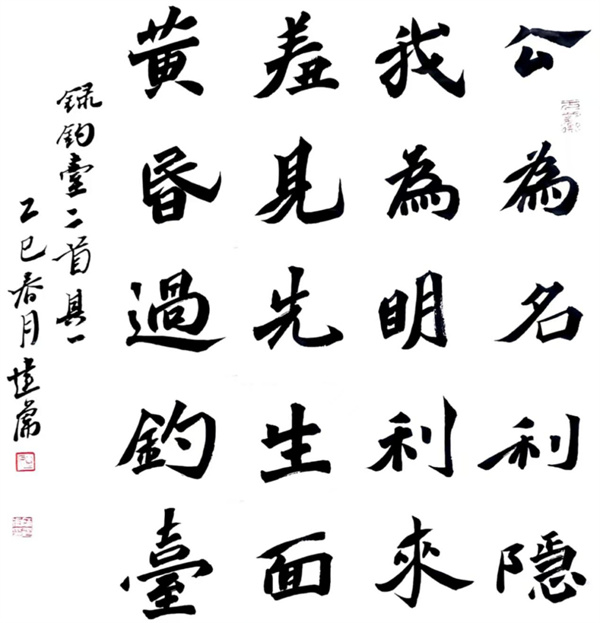 公為名利隱
我為明利來
羞見先生面
黃昏過釣臺
録釣臺二首其一
乙巳春月建